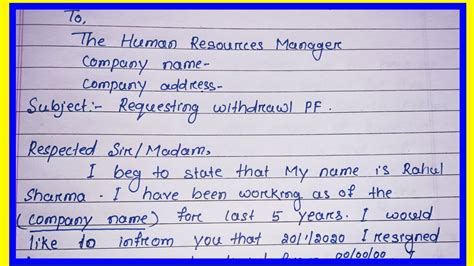 To,
The Human Resources Manager
Company name-
Company address-
Subject:- Requesting withdrawl PF.
Respected Sir/Madam,
I beg to state that My name is Rahul
Sharma. I have been working as of the
(company name) for last 5 years. I would
like to infrom you that 20/1/2020 I resigned
00/00/00 I